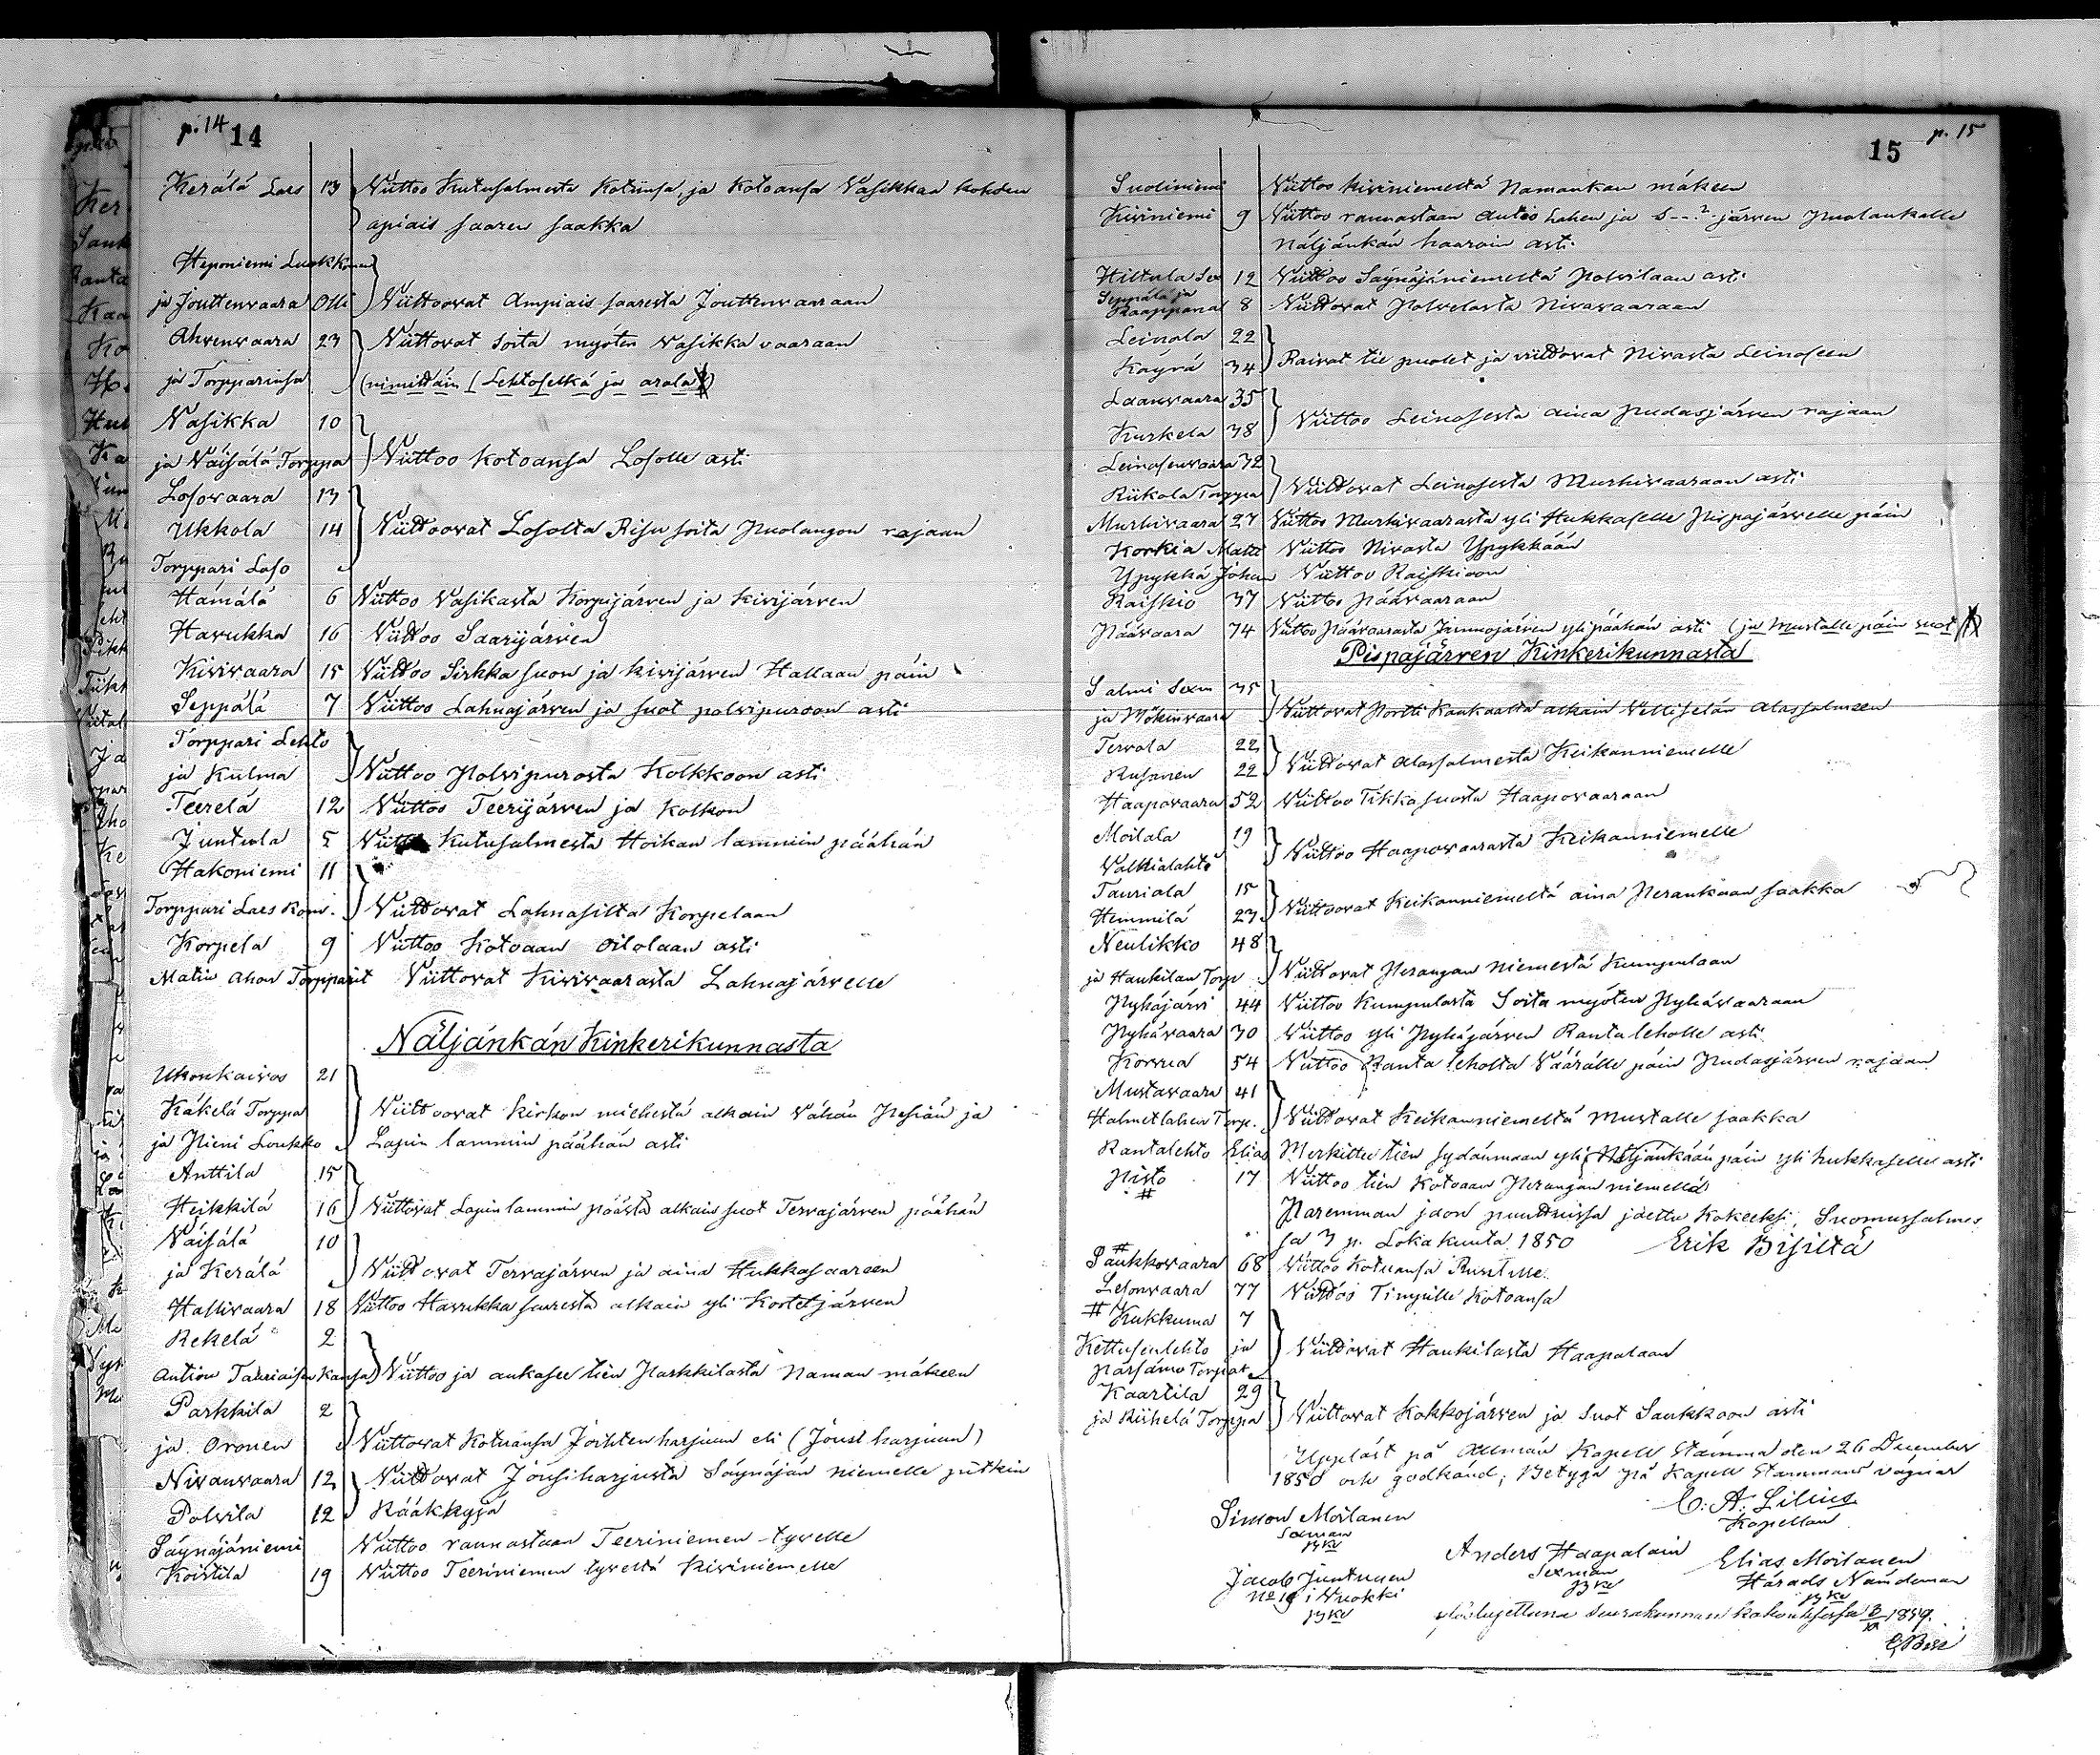 p. 14 14
Kerälä Lars 13 Viittoo Kutusalmesta Kotiinsa, ja kotoansa Vasikkaa kohden
apiais saaren saakka
Heponiemi Luokkonen
ja Jouttenvaara Olli Viittoovat Ampiais saaresta Jouttenvaaraan
Ahvenvaara 23 Viittovat soita myöten Vasikka vaaraan
ja Torpparinsa (nimittäin / Lehtoselkä ja arola)
Vasikka 10
ja Väisälä Torppa Viittoo kotoansa Losolle asti
Losovaara 13
Ukkola 14 Viittoovat Losolta Risu soita Puolangon rajaan
Torppari Laso
Hämälä 6 Viittoo Vasikasta Korpijärven ja kivijärven
Havukka 16 Viittoo Saarijärven
Kivivaara 15 Viittoo Sirkka suon ja kivijärven Hallaan päin
Seppälä 7 Viittoo Lahnajärven ja suot polvipuroon asti
Torppari Lehto
ja Kulma Viittoo Polvipurosta Kolkkoon asti
Teerelä 12 Viittoo Teerijärven ja Kolkon
Juntula 5 Kutusalmesta Hoikan lammiin päähän
Hakoniemi 11
Torppari Lars Komi. Viittovat Lahnasilta Korpelaan
Korpela 9 Viittoo Kotoaan Oilolaan asti
Matin Ahon Torpparit Viittovat Kivivaarasta Lahnajärvelle
Näljänkän Kinkerikunnasta
Ukonkaivos 21
Käkelä Torppa Viittoovat kirkon miehestä alkain Vähän Pesiän ja
ja Pieni Loukko Lapin lammin päähän asti
Anttila 15
Heikkilä 16 Viittovat Lapin lammin päästä alkain suot Tervajärven päähän
Väisälä 10
ja Kerälä Viittovat Tervajärven ja aina Hukkasaareen
Hallivaara 18 Viittoo Havukka suuresta alkain yli Kostetjärven
Rekelä 2
Antion Tauriaisen Kansa Viittoo ja aukasee tien Parkkilasta Naman mäkeen
Parkkila 2
ja Oronen Viittovat Kotuansa Joihten harjuun eli (Joust harjuun)
Nivanvaara 12 Viittovat Jousiharjusta Säynäjän niemelle pitkin
Polvila 12 Rääkkyjä
Säynäjäniemi Viittoo rannastaan Teeriniemen tyvelle
Koistila 19 Viittoo Teeriniemen tyveltä Kiviniemelle
p. 15
15
Suoliniemi Viittoo kiviniemestä Namankan mäkeen
Kiviniemi 9 Viittoo rannastaan autio Lahen ja S--?-järven Puolankalle
Näljänkän haaroin asti.
Hiltula Sex 12 Viittoo Säynäjäniemeltä Polvilaan asti
Seppälä ja
Kaappana 8 Viittovat Polvelasta Nivavaaraan
Leinola 22
Käyrä 34 Raivat tie puolet ja viittovat Nivasta Leinoseen
Laanvaara 35
Kurkela 38 Viittoo Leinosesta aina Pudasjärven rajaan
Leinosenvaara 32
Riikola Torppa Viittovat Leinosesta Murhivaaraan asti
Murhivaara 27 Viittoo Murhivaarasta yli Hukkaselle Pispajärvelle päin
Korkia Matti Viittoo Nivasta Ypykkään
Ypykkä Johan Viittoo Raiskioon
Raiskio 37 Viittoo Päävaaraan
Päävaara 74 Viittoo Päävaarasta Jumojärven yli päähän asti (ja Mustalle päin suot
Pispajärven Kinkerikunnasta
Salmi Sexm 35
ja Mökinvaara Viittovat Portti Kankaalta alkain Velliselän Alassalmeen
Tervola 22
Rusanen 22 Viittovat Alassalmesta Keikanniemelle
Haapovaara 52 Viittoo Tikka suosta Haapovaaraan
Moilala 19
Valkialahti Viittoo Haapovaarasta Keikanniemelle
Tauriala 15
Hemmilä 23 Viittoovat Keikanniemeltä aina Perankaan saakka
Neulikko 48
ja Haukilan Torp Viittovat Perangan niemestä Kumpulaan
Pyhäjärvi 44 Viittoo Kumpulasta Soita myöten Pyhävaaraan
Pyhävaara 30 Viittoo yli Pyhäjärven Ranta leholle asti
Korvua 54 Viittoo Ranta leholta Väärälle päin Pudasjärven rajaan
Mustavaara 41
Halmetlahen Torp. Viittovat Keikanniemeltä Mustalle saakka
Rantalehto Elias Merkittee tien sydänmaan yli Näljänkään päin yli hukkaselle asti
Pisto 17 Viittoo tien Kotoaan Perangan niemellä
#
Paremman jaon puuttuissa jaettu Kokeeksi, Suomussalmes
sa 3 p. Lokakuuta 1850 Erik Bisiltä
#
Saukkovaara 68 Viittoo Kotuansa
Lesonvaara 77 Viittoo Kotoansa
# Kukkuma 7
Kettusenlehto ja Viittovat Haukilasta Haapalaan
Pärsämo Torpat
Kaartila 29
ja Riihelä Torppa Viittovat Kokkojärven ja suot Saukkoon asti
Uppläst på Allmän Kapell Stämma den 26 December
1850 och godkänd; Betyga på Kapell Stämmans vägnar
C. A. Lilius
Kapellan
Simon Moilanen
Sexman
Anders Haapalain
Sexman
Elias Moilanen
Härads Nämdeman
Jacob Juntunen
No 19 i Vuokki
ylösluettuna seurakunnan kokouksessa 1859.